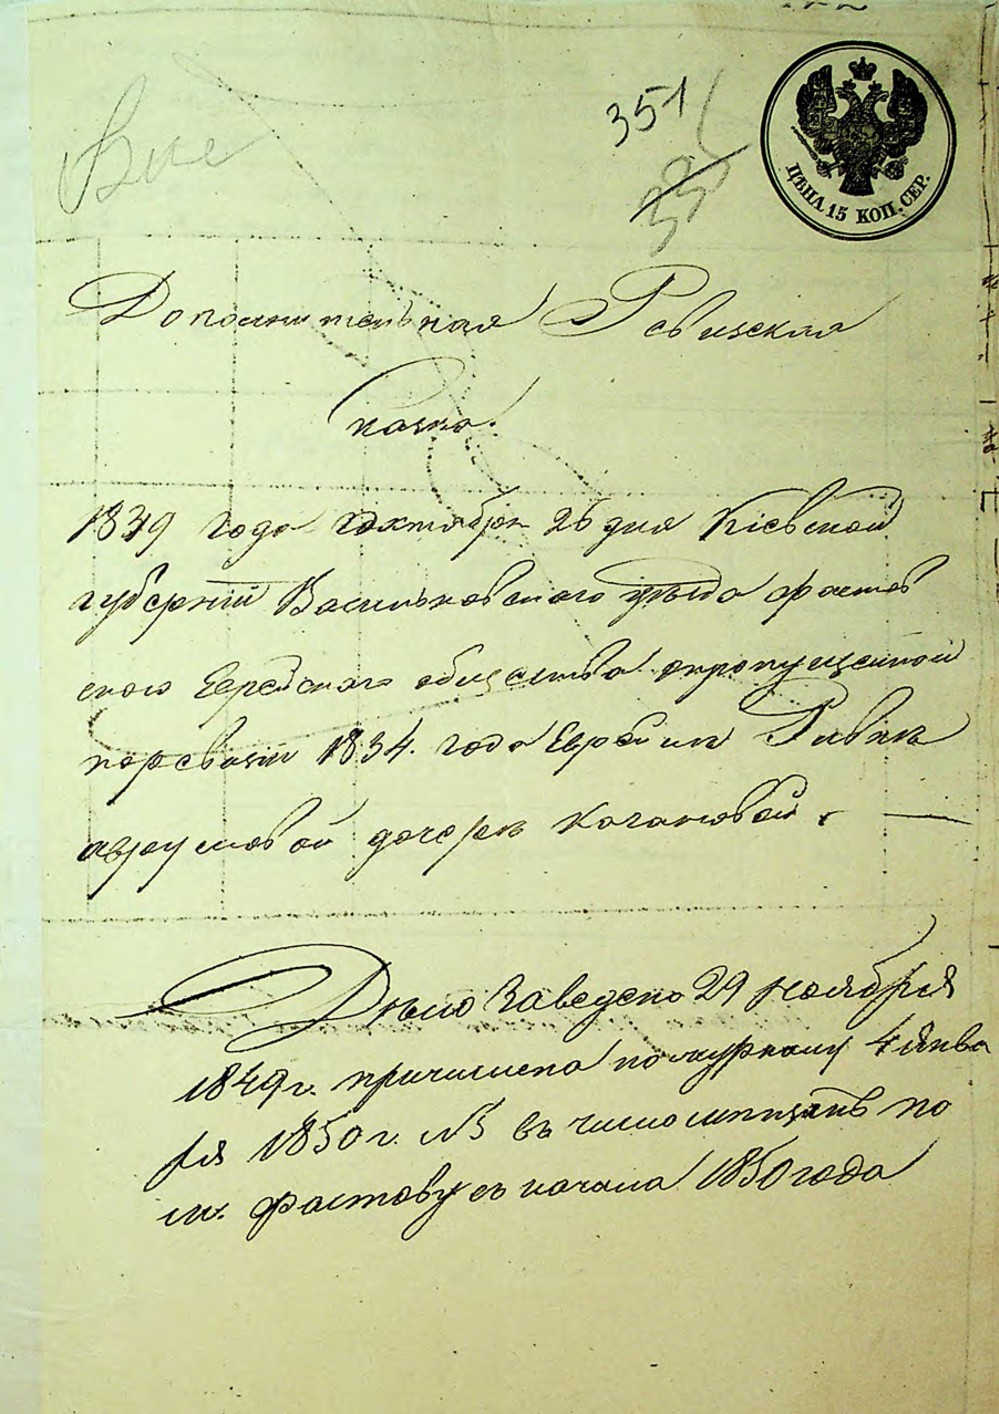 351
ЦѢНА 15 КОП. СЕР.
Дополнительная Ревизская
сказка.
1849 года октября 26 дня Кіевской
губерніи Васильковскаго уѣзда фастов
скаго Еврейскаго общества о пропущенной
по ревизіи 1834. года Еврейкѣ Ривкѣ
аврумовой дочери Кагановой.
Дѣло Заведено 29 Ноября
1849 г. причислена по журналу 4 Янва
ря 1850 г. № 5 въ число мѣщанъ по
м. Фастову съ начала 1850 года